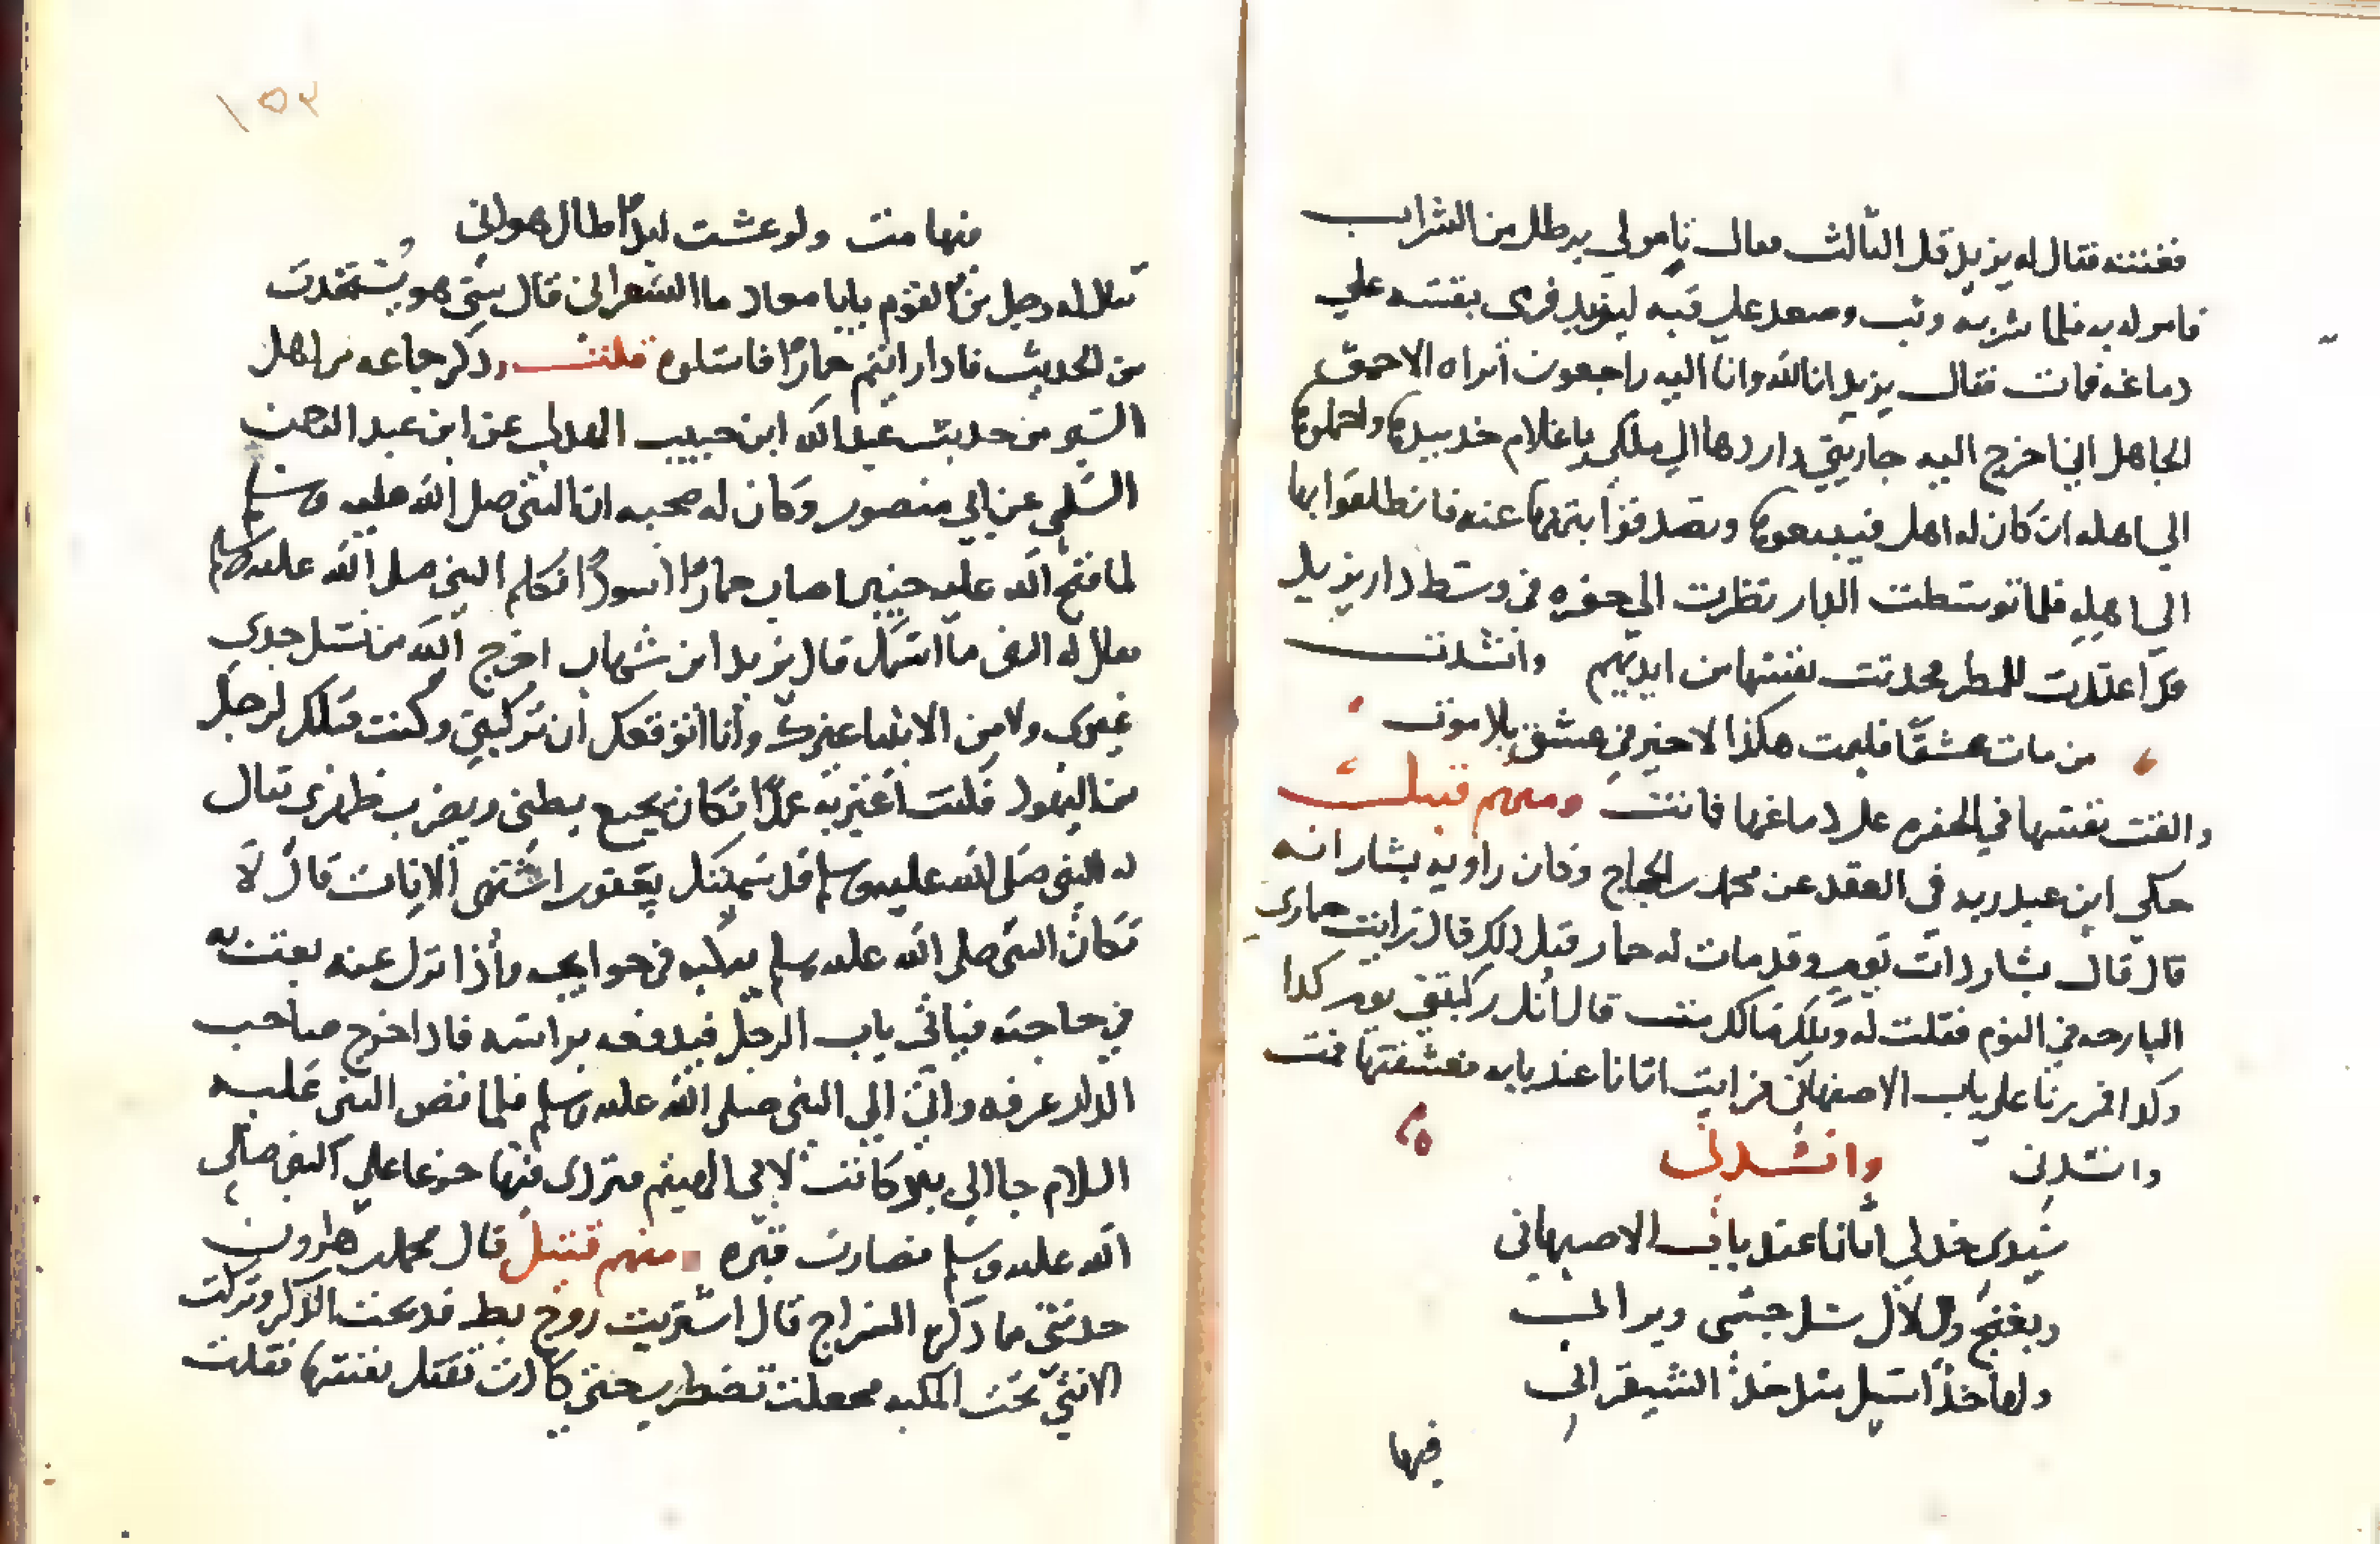 فغنته فقال له يزيد قل الثالث فقال يا مولى برطل من الشراب
فامر له به فلما شربه وثب وصعد على قبه ليزيد فرمى بنفسه على
دماغه فمات فقال يزيد انا لله وانا اليه راجعون اتراه الاحمق
الجاهل اني اخرج اليه جاريتي واردها الي ملكي يا غلام خد بيدها واحملوها
الي اهله ان كان له اهل فبيعوها وتصدقوا بثمنها عنه فانطلقوا بها
الي اهله فلما توسطت الدار نظرت الي حفره في وسط دار يزيد
قد اعدت للمطر فجدبت نفسها من ايديهم وانشدت
من مات عشقا فليمت هكذا لا خير في عشق بلا موت
والقت نفسها في الحفره على دماغها فماتت ومنهم قتيل
حكي ابن عبد ربه في العقد عن محمد بن الحجاج وكان راويه بشار انه
قال قال بشار دات يوم وقد مات له حمار قبل ذلك قال رايت حماري
البارحه في النوم فقلت له ويلك مالك مت قال انك ركبتني يوم كدا
وكدا فمررنا على باب الاصفهاني فرايت اتانا عند بابه فعشقتها فمت
وانشدني وانشدني
سيدي خد لي اتانا عند باب الاصبهاني
وبغنج ودلال سل جسمي وبراني
ولها خد اسيل مثل خد الشيقراني
فيها
١٥٣
فيها مت ولو عشت ادا طال هواني
فقال له رجل من القوم يا ابا معاد ما الشيقراني قال شي هو يتحدث
من الحديث فادا رايتم حمارا فاسئلوه قلت ودكر جماعه من اهل
السير من حديث عبد الله ابن حبيب الهدلي عن ابن عبد الرحمن
السلمي عن ابي منصور وكان له صحبه ان النبي صلى الله عليه وسلم
لما فتح الله عليه خيبر اصاب حمارا اسودا فكلم النبي صلى الله عليه وسلم
فقال له النبي ما اسمك قال يزيد ابن شهاب اخرج الله من نسل جدي
غيري ولا من الانبيا غيرك وانا اتوقعك ان تركبني وكنت قبلك لرجل
من اليهود فكنت اعثر به عمدا فكان يجيع بطني ويضرب ظهري فقال
له النبي صلى الله عليه وسلم قد سميتك يعفور اشتهي الاناث قال لا
فكان النبي صلى الله عليه وسلم يركبه في حوايجه واذا نزل عنه بعت به
في حاجته فياتي باب الرجل فيدفعه براسه فادا خرج صاحب
الدار عرفه واتى الي النبي صلى الله عليه وسلم فلما قض النبي عليه
السلام جا الى بير كانت لابي الهيثم فتردى فيها جزعا على النبي صلى
الله عليه وسلم فصارت قبره ومنهم قتيل قال محمد بن هارون
حدثني مما دكره السراج قال اشتريت زوج بط فدبحت الدكر وتركت
الانثي تحت المكبه فجعلت تضطرب حتي كادت تقتل نفسها فقلت